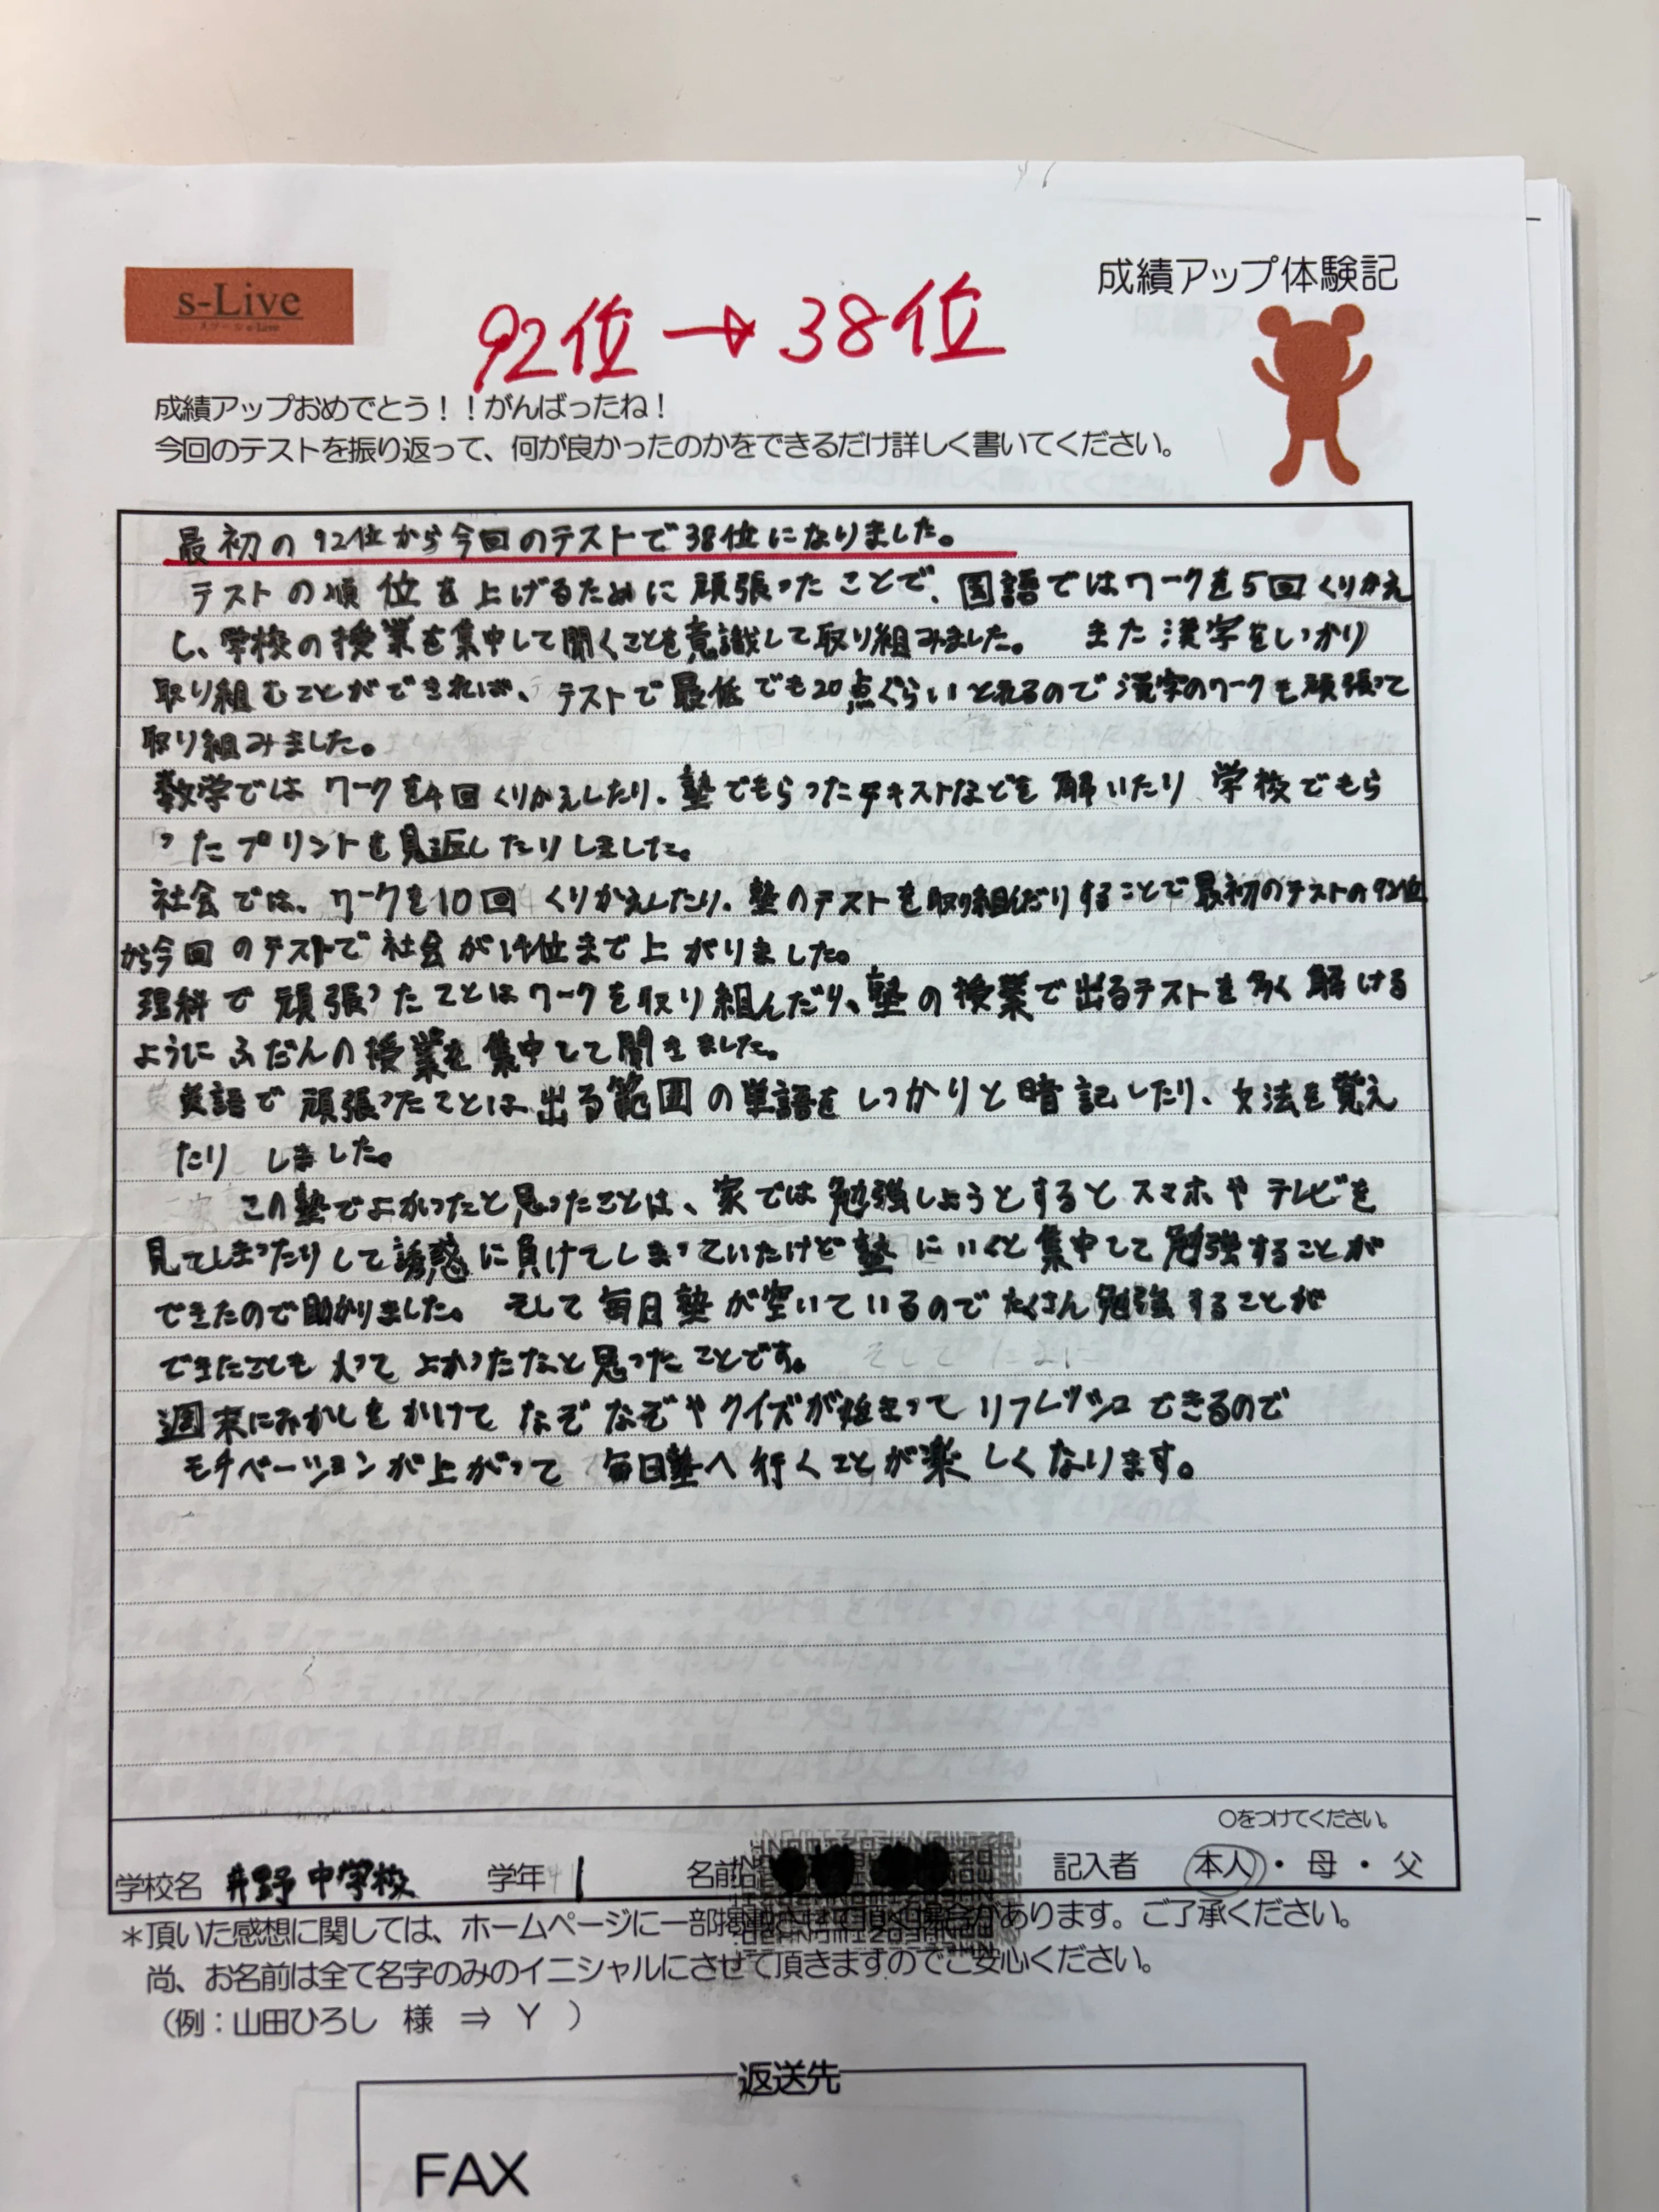 s-Live
成績アップ体験記
92位→38位
成績アップおめでとう！！がんばったね！
今回のテストを振り返って、何が良かったのかをできるだけ詳しく書いてください。
最初の92位から今回のテストで38位になりました。
テストの順位を上げるために頑張ったことで、国語ではワークを5回くりかえ
し、学校の授業を集中して聞くことを意識して取り組みました。 また漢字をしっかり
取り組むことができれば、テストで最低でも20点ぐらいとれるので漢字のワークも頑張って
取り組みました。
数学ではワークを4回くりかえしたり、塾でもらったテキストなどを解いたり学校でもら
ったプリントを見返したりしました。
社会では、ワークを10回くりかえしたり、塾のテストを取り組んだりすることで最初のテストの92位
から今回のテストで社会が14位まで上がりました。
理科で頑張ったことはワークを取り組んだり、塾の授業で出るテストを多く解ける
ようにふだんの授業を集中して聞きました。
英語で頑張ったことは出る範囲の単語をしっかりと暗記したり、文法を覚え
たりしました。
この塾でよかったと思ったことは、家では勉強しようとするとスマホやテレビを
見てしまったりして誘惑に負けてしまっていたけど塾にいくと集中して勉強することが
できたので助かりました。そして毎日塾が空いているのでたくさん勉強することが
できたことも入ってよかったなと思ったことです。
週末におかしをかけてなぞなぞやクイズが始まってリフレッシュできるので
モチベーションが上がって毎日塾へ行くことが楽しくなります。
○をつけてください。
学校名 井野中学校 学年 1 名前 記入者 本人・母・父
＊頂いた感想に関しては、ホームページに一部掲載させて頂く場合があります。ご了承ください。
尚、お名前は全て名字のみのイニシャルにさせて頂きますのでご安心ください。
（例：山田ひろし 様 ⇒ Y ）
返送先
FAX